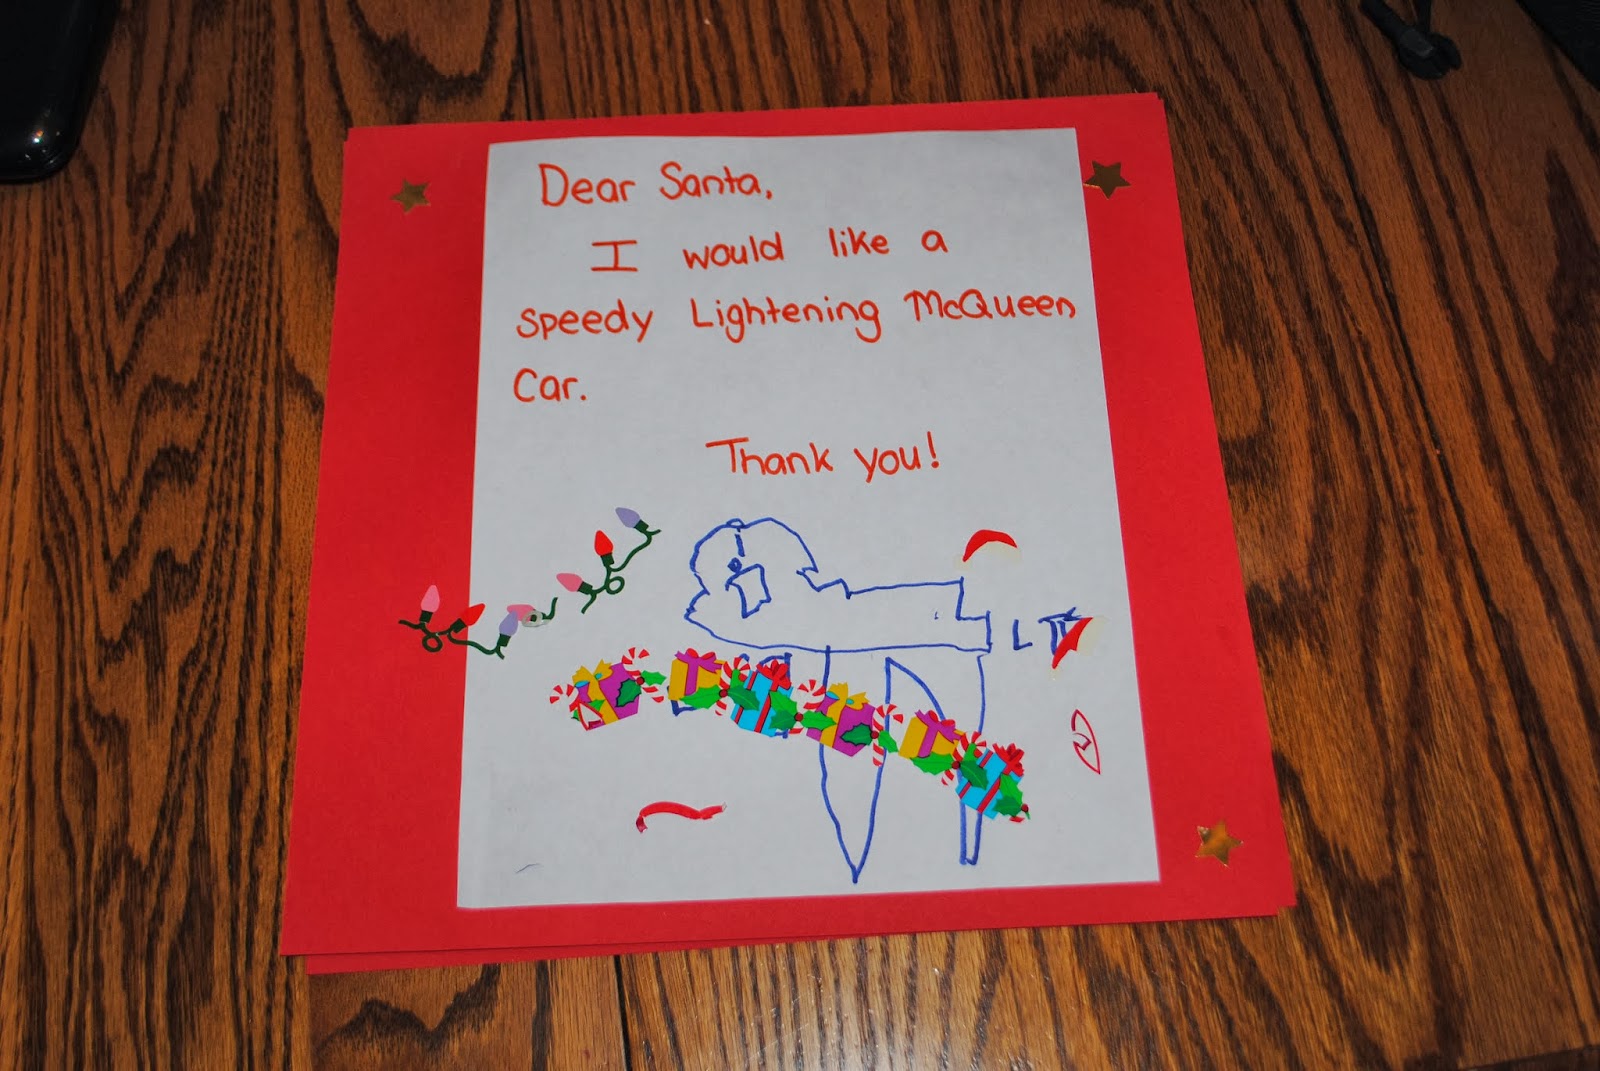 Dear Santa,
I would like a
speedy Lightening McQueen
Car.
Thank you!